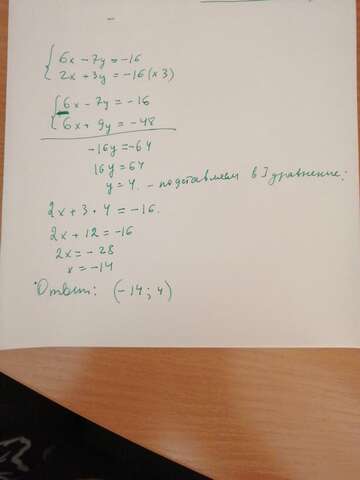 6x - 7y = -16
2x + 3y = -16 (x 3)
6x - 7y = -16
6x + 9y = -48
-16y = -64
16y = 64
y = 4. - подставляем в 1 уравнение:
2x + 3 • 4 = -16.
2x + 12 = -16
2x = -28
x = -14
Ответ: (-14; 4)